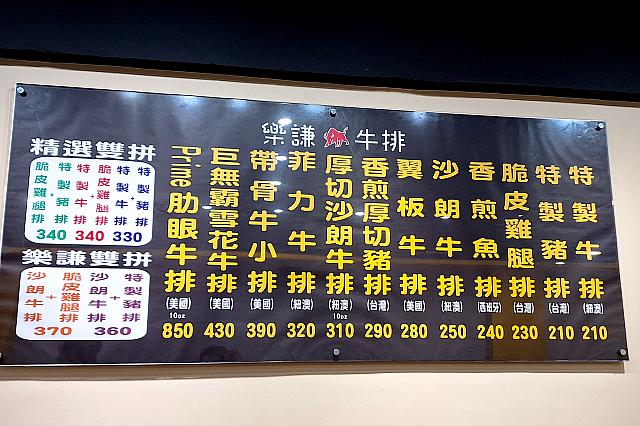 樂謙 牛排
精選雙拼
脆皮雞腿排
+
特製豬排
340
特製牛排
+
脆皮雞腿排
340
特製牛排
+
特製豬排
330
樂謙雙拼
沙朗牛排
+
脆皮雞腿排
370
沙朗牛排
+
特製豬排
360
Prime肋眼牛排
(美國)
10oz
850
巨無霸雪花牛排
(美國)
430
帶骨牛小排
(美國)
390
菲力牛排
(紐澳)
320
厚切沙朗牛排
(紐澳)
10oz
310
香煎厚切豬排
(台灣)
290
翼板牛排
(美國)
280
沙朗牛排
(紐澳)
250
香煎魚排
(西班牙)
240
脆皮雞腿排
(台灣)
230
特製豬排
(台灣)
210
特製牛排
(紐澳)
210